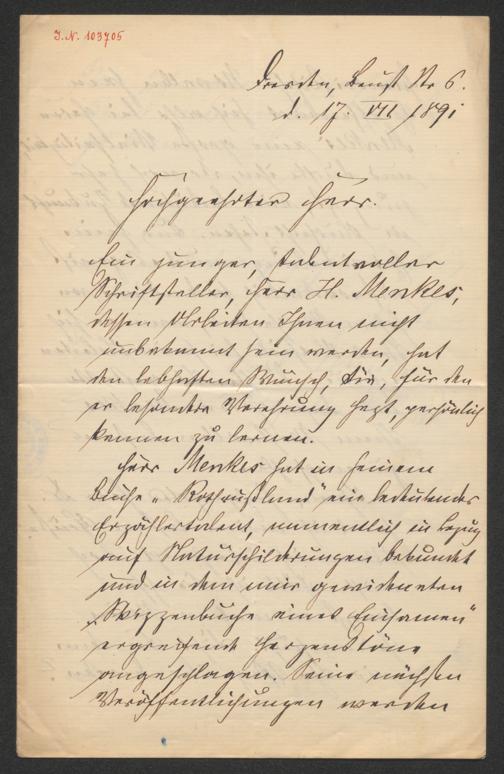 J.N. 103705
Dresden, Beust Str 6.
d. 17. VII. 1891
Hochgeehrter Herr.
Ein junger, talentvoller
Schriftsteller, Herr H. Menkes,
dessen Arbeiten Ihnen nicht
unbekannt sein werden, hat
den lebhaften Wunsch, Sie, für den
er besondre Verehrung hegt, persönlich
kennen zu lernen.
Herr Menkes hat in seinem
Buche „Rothrußland" ein bedeutendes
Erzählertalent, namentlich in bezug
auf Naturschilderungen bekundet
und in dem mir gewidmeten
„Skizzenbuche eines Einsamen"
ergreifende Herzenstöne
angeschlagen. Seine nächsten
Veröffentlichungen werden